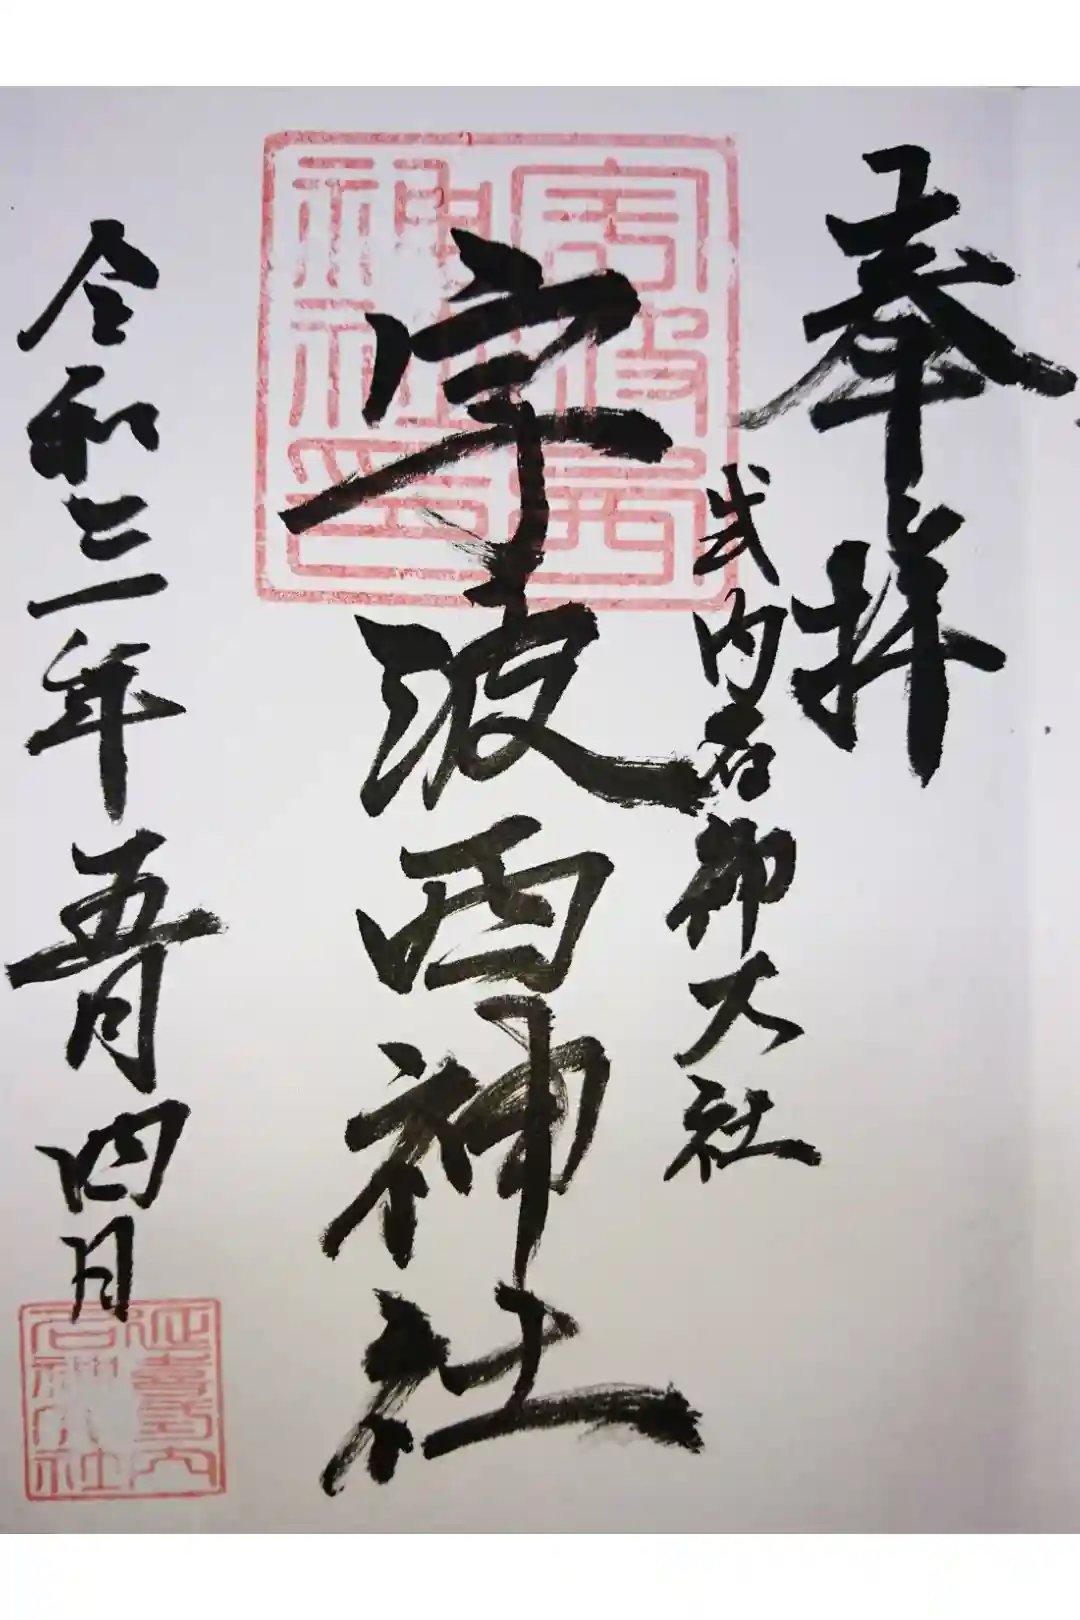 奉拝
式内名神大社
宇波西神社
令和三年五月四日
宇波西
神社印
延喜式内
名神大社